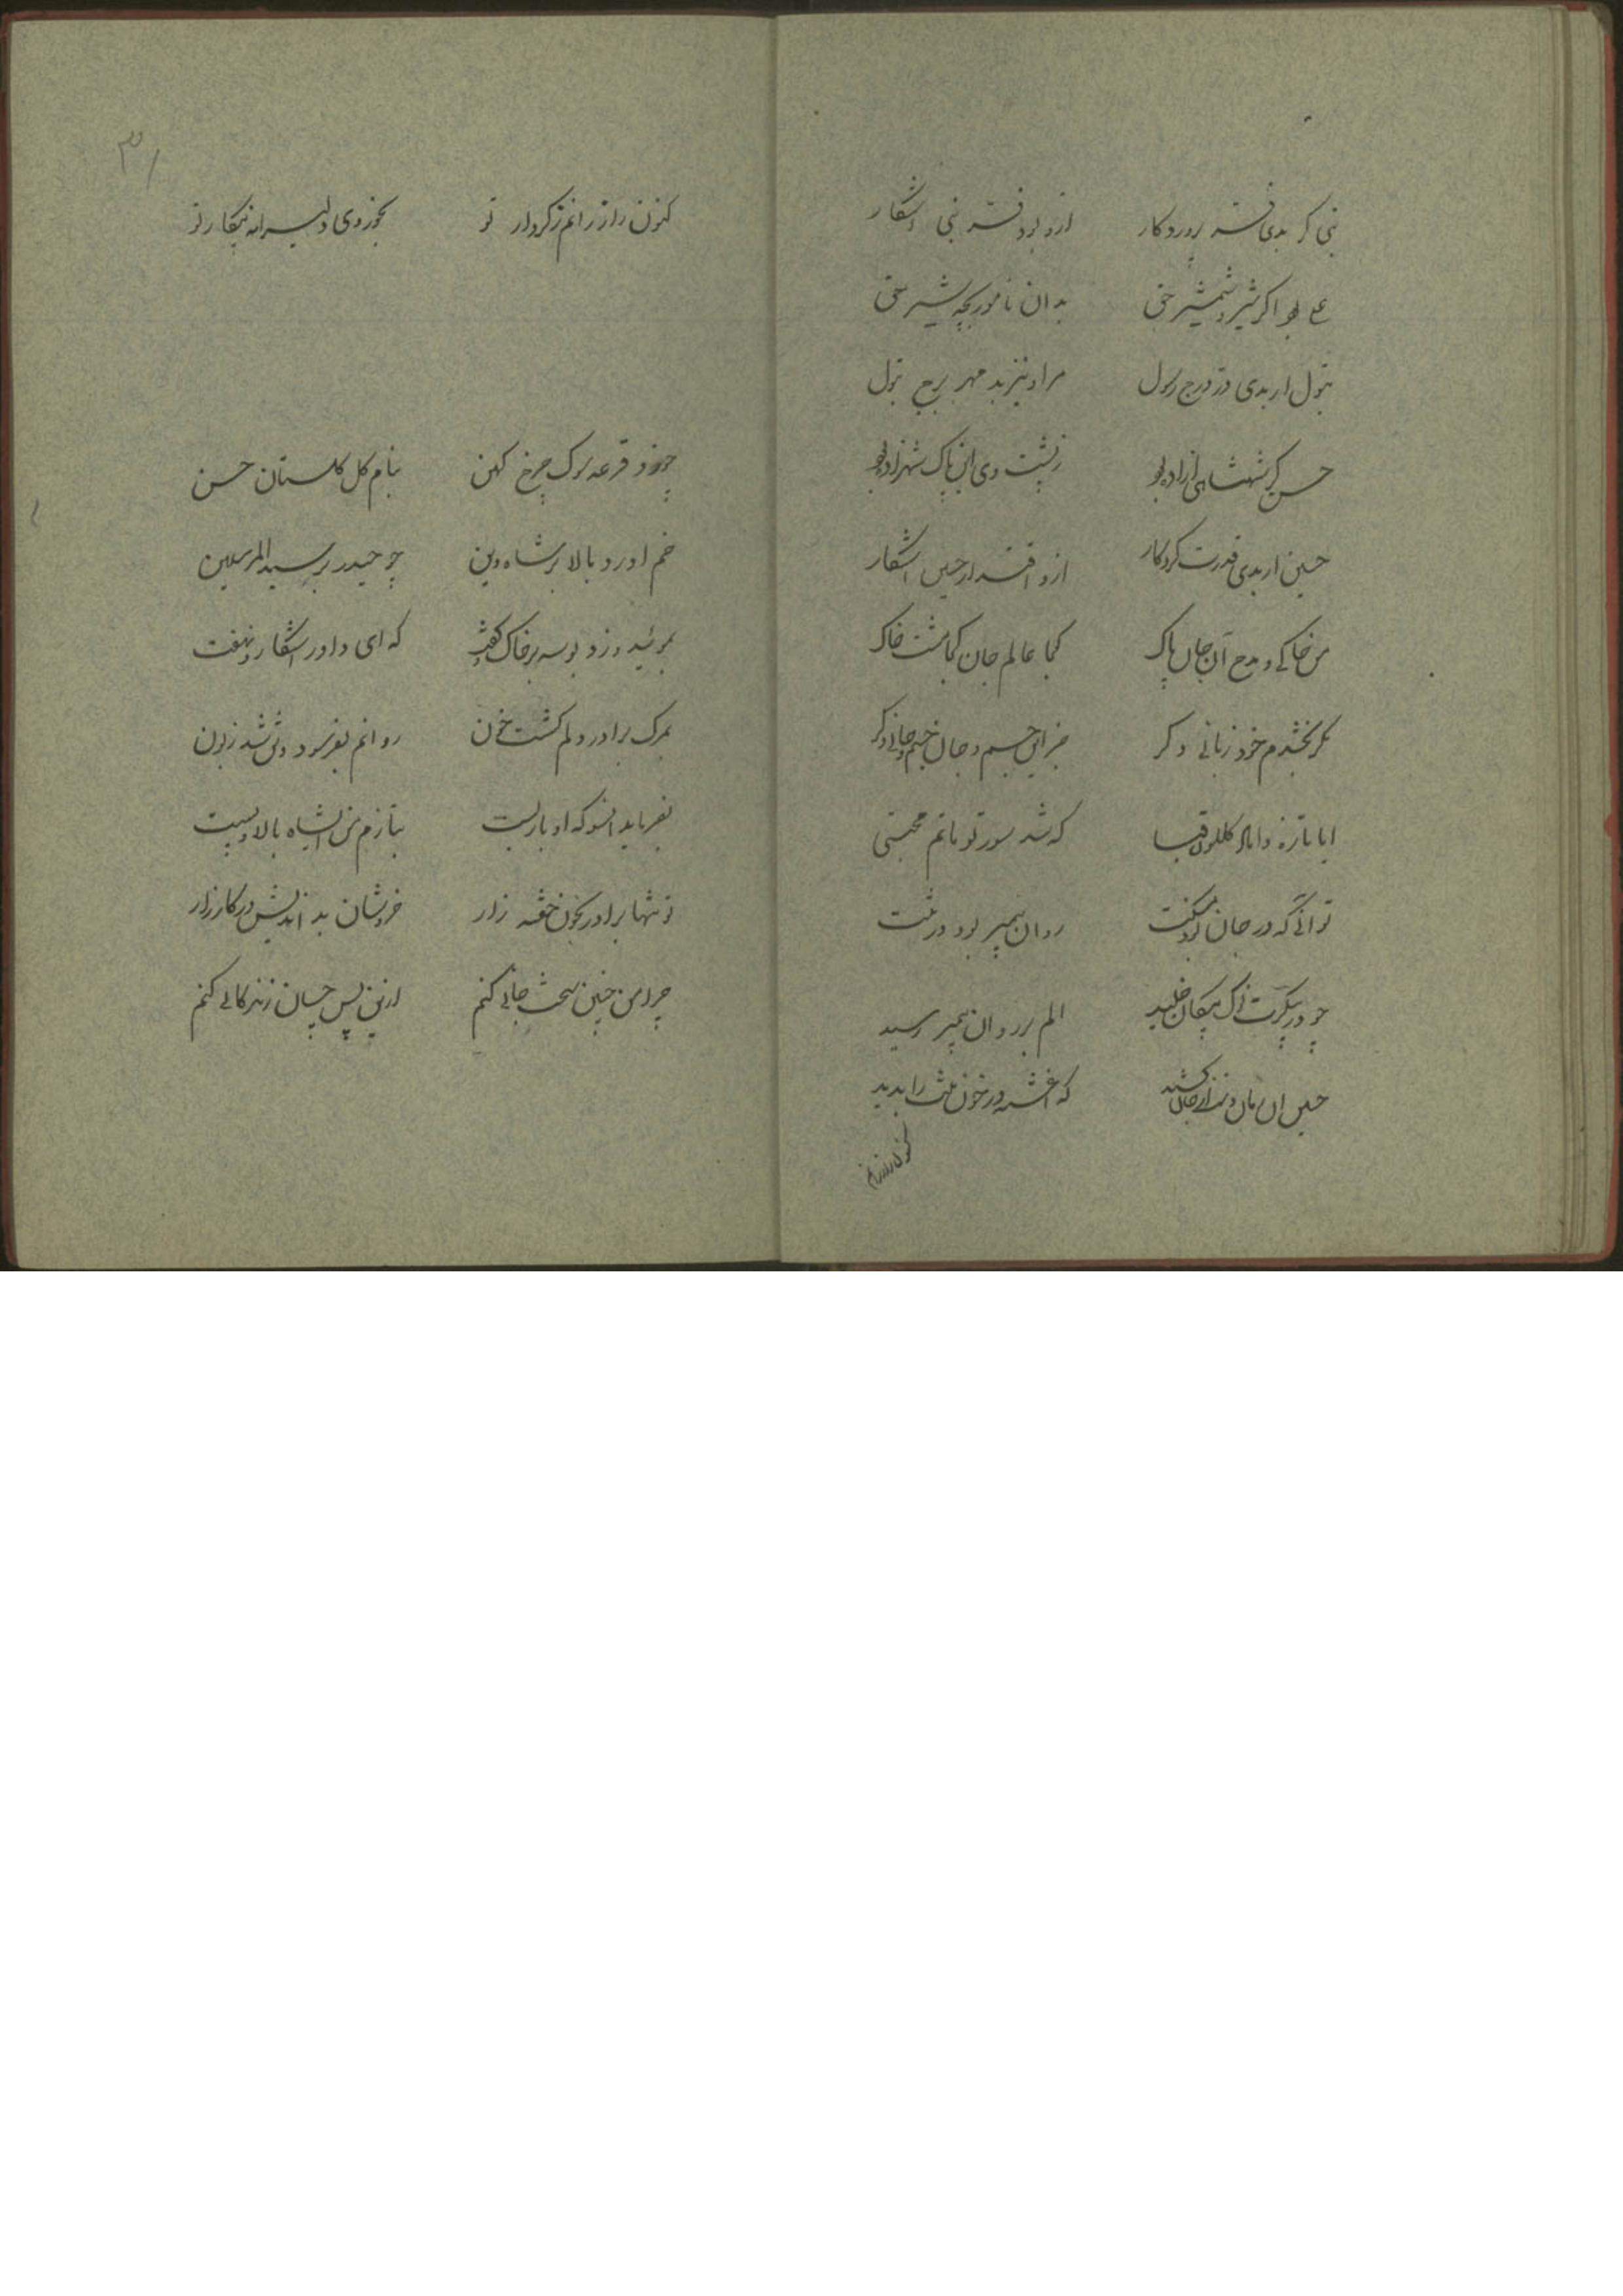 نبی گر بدی فتنه پروردگار ازو بود فتنه نبی اشکار
علی بود اگر شیر و شمشیر حق بدان نامور بچه شیر حق
بتول ار بدی در درج رسول مر او نیز بد مهر برج بتول
حسن گر شهنشاهی ازاده بود ز پشت وی این پاک شهزاده بود
حسین ار بدی قدرت کردکار ازو اقتدار حسین اشکار
من خاکی و مدح آن جان پاک کجا عالم جان کجا مشت خاک
مگر بخشدم خود زبانی دکر جز این جسم و جان جسم و جانی دکر
ایا تازه داماد گلگون قبا که شد سور تو ماتم مجتبی
تو آنی که در جان بود مسکنت روان پیمبر بود در تنت
چو در پیکرت نوک پیکان خلید الم بر روان پیمبر رسید
حسین ان زمان دست از جان کشید که اغشته در خون تنت را بدید
کنون راز رانم
۳۱
کنون راز رانم ز کردار تو بخوزوی دلیرانه پیکار تو
چو زد قرعه ترک چرخ کهن بنام کل کلستان حسن
خم اورد بالا بر شاه دین چو حیدر بر سید المرسلین
بموئید و زد بوسه بر خاک و گفت که ای داور اشکار و نهفت
بمرک برادر دلم کشت خون روانم بفرسود و تن شد زبون
بفرماید انسو که او بار بست بتازم من ایشاه بالا و پست
تو تنها برادر بخون خفته زار خروشان بد اندیش در کارزار
چرا من چنین سخت جانی کنم ازین پس چسان زندکانی کنم